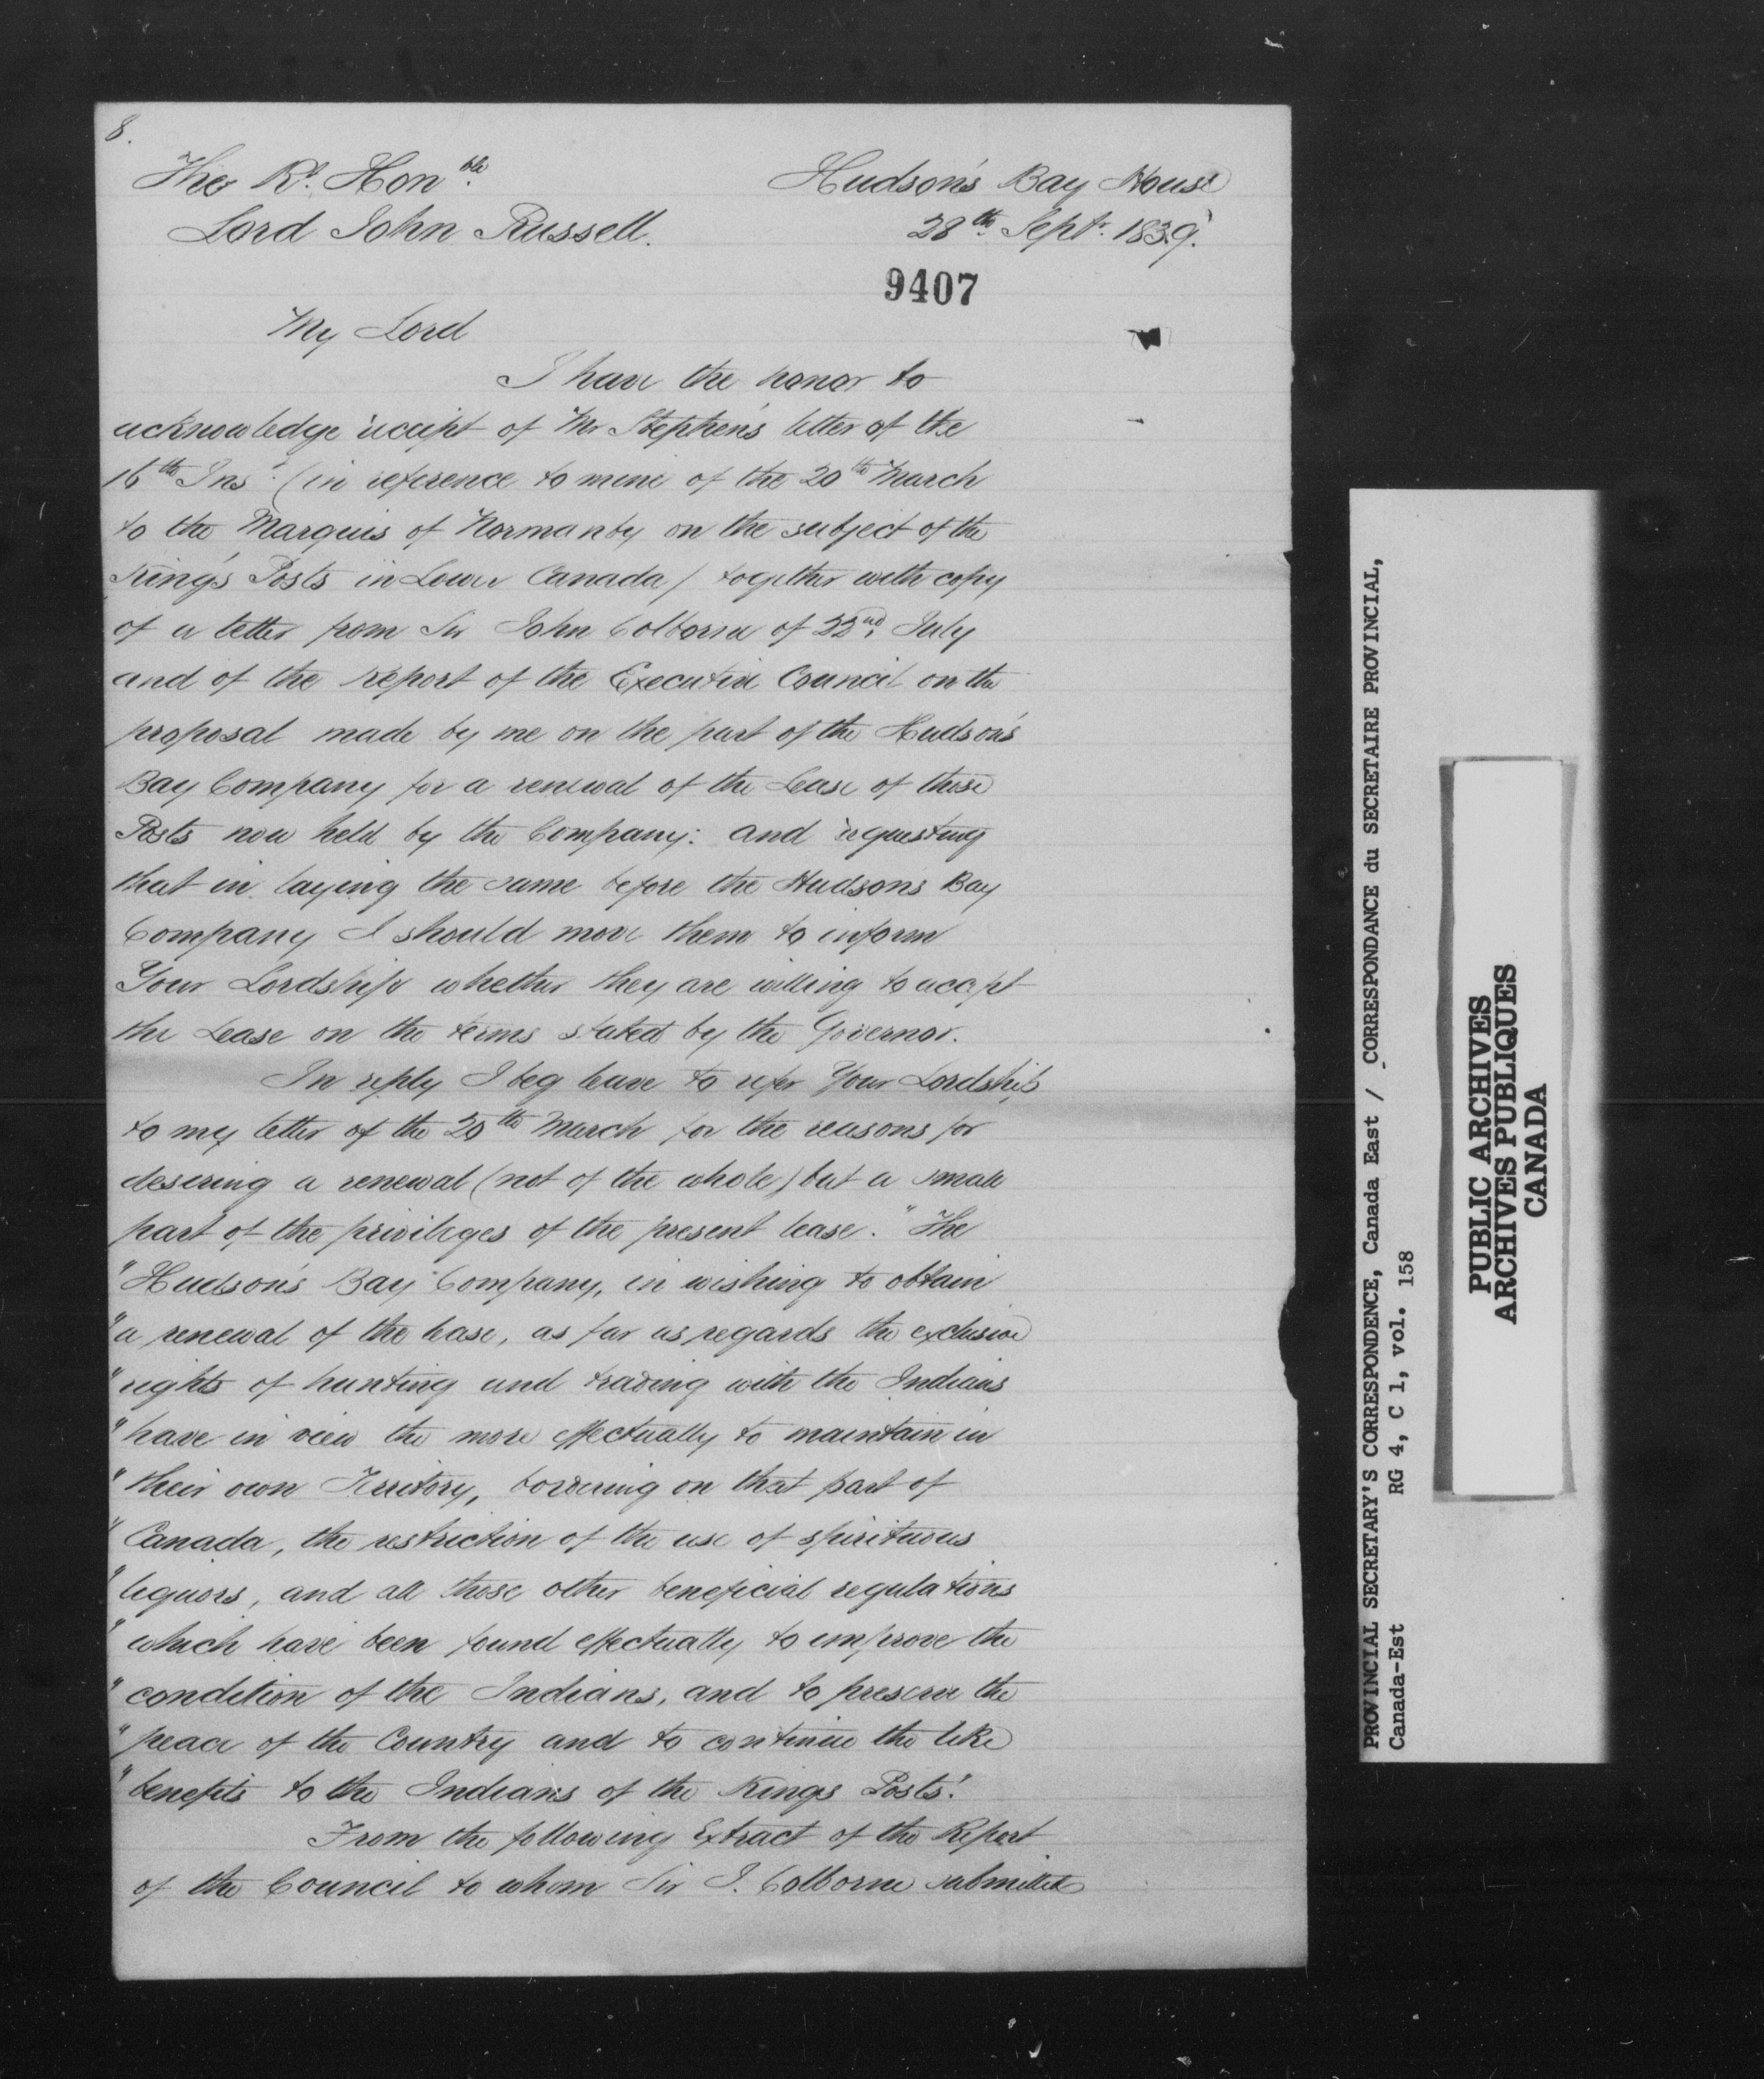 8.
The Rt. Honble.
Lord John Russell.
Hudson's Bay House
28th Septr. 1839.
9407
My Lord
I have the honor to
acknowledge receipt of Mr Stephen's letter of the
16th Inst. (in reference to mine of the 20th March
to the Marquis of Normanby on the subject of the
King's Posts in Lower Canada) together with copy
of a letter from Sir John Colborne of 22nd. July
and of the report of the Executive Council on the
proposal made by me on the part of the Hudson's
Bay Company for a renewal of the Lease of those
Posts now held by the Company: and requesting
that in laying the same before the Hudsons Bay
Company I should move them to inform
Your Lordship whether they are willing to accept
the Lease on the terms stated by the Governor.
In reply I beg leave to refer Your Lordship
to my letter of the 20th March for the reasons for
desering a renewal (not of the whole) but a small
part of the privileges of the present lease. "The
"Hudson's Bay Company, in wishing to obtain
"a renewal of the lease, as far as regards the exclusive
"rights of hunting and trading with the Indians
"have in view the more effectually to maintain in
"their own Territory, bordering on that part of
"Canada, the restriction of the use of spirituous
"liquors, and all those other beneficial regulations
"which have been found effectually to improve the
"condition of the Indians, and to preserve the
"peace of the Country and to continue the like
"benefits to the Indians of the Kings Posts".
From the following Extract of the Report
of the Council to whom Sir J. Colborne submitted
PROVINCIAL SECRETARY'S CORRESPONDENCE, Canada East / CORRESPONDANCE du SECRETAIRE PROVINCIAL,
Canada-Est RG 4, C 1, vol. 158
PUBLIC ARCHIVES
ARCHIVES PUBLIQUES
CANADA